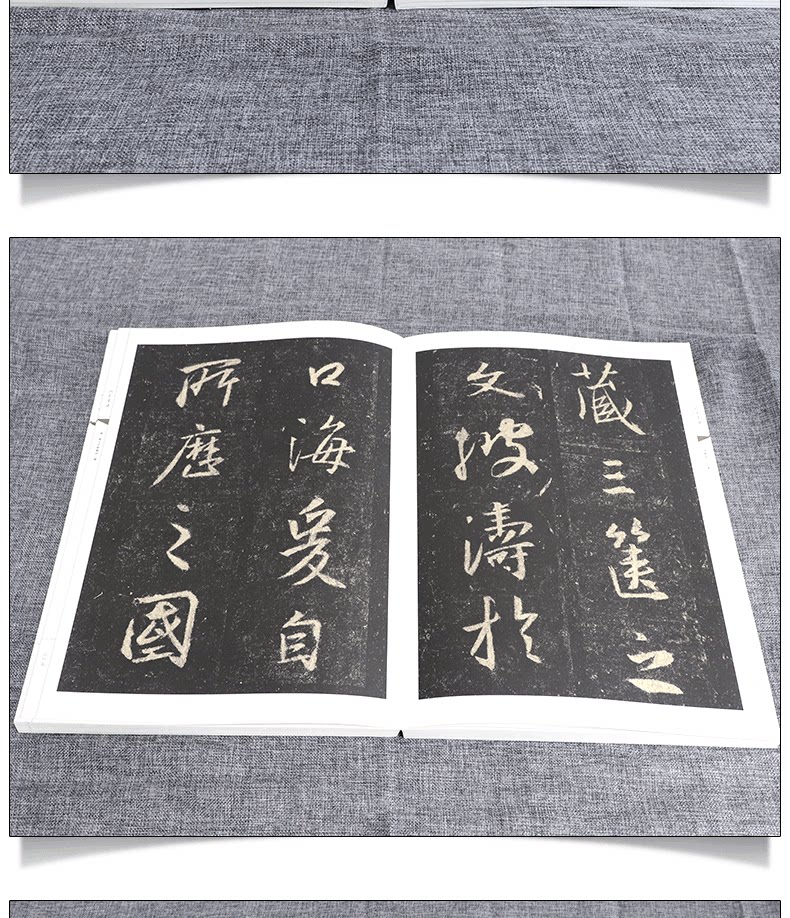 藏三篋之
文波濤於
口海爰自
所歷之國